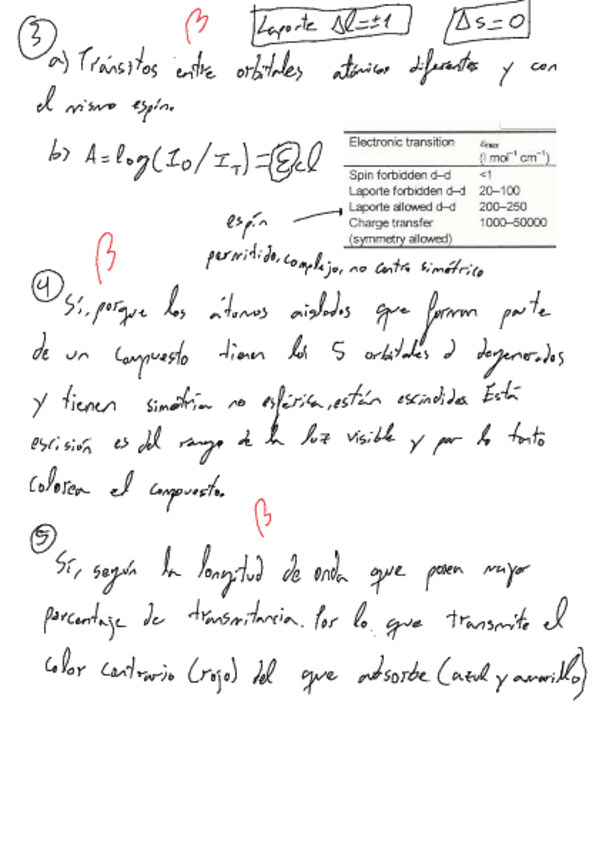 β
Laporte Δl=±1 Δs=0
③
a) Tránsitos entre orbitales atómicos diferentes y con
el mismo espín.
b) A=log(I₀/I_T)=εcl
Electronic transition εmax
(l mol⁻¹ cm⁻¹)
Spin forbidden d–d <1
Laporte forbidden d–d 20–100
Laporte allowed d–d 200–250
Charge transfer 1000–50000
(symmetry allowed)
espín
permitido, complejo, no centro simétrico
β
④
Sí, porque los átomos aislados que forman parte
de un compuesto tienen los 5 orbitales d degenerados
y tienen simetría no esférica, están escindidos Está
escisión es del rango de la luz visible y por lo tanto
colorea el compuesto.
β
⑤
Sí, según la longitud de onda que posea mayor
porcentaje de transmitancia. Por lo que transmite el
color contrario (rojo) del que absorbe (azul y amarillo)